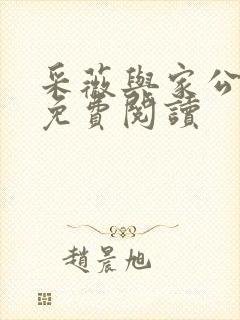 采薇與家公
免費閱讀
趙晨旭